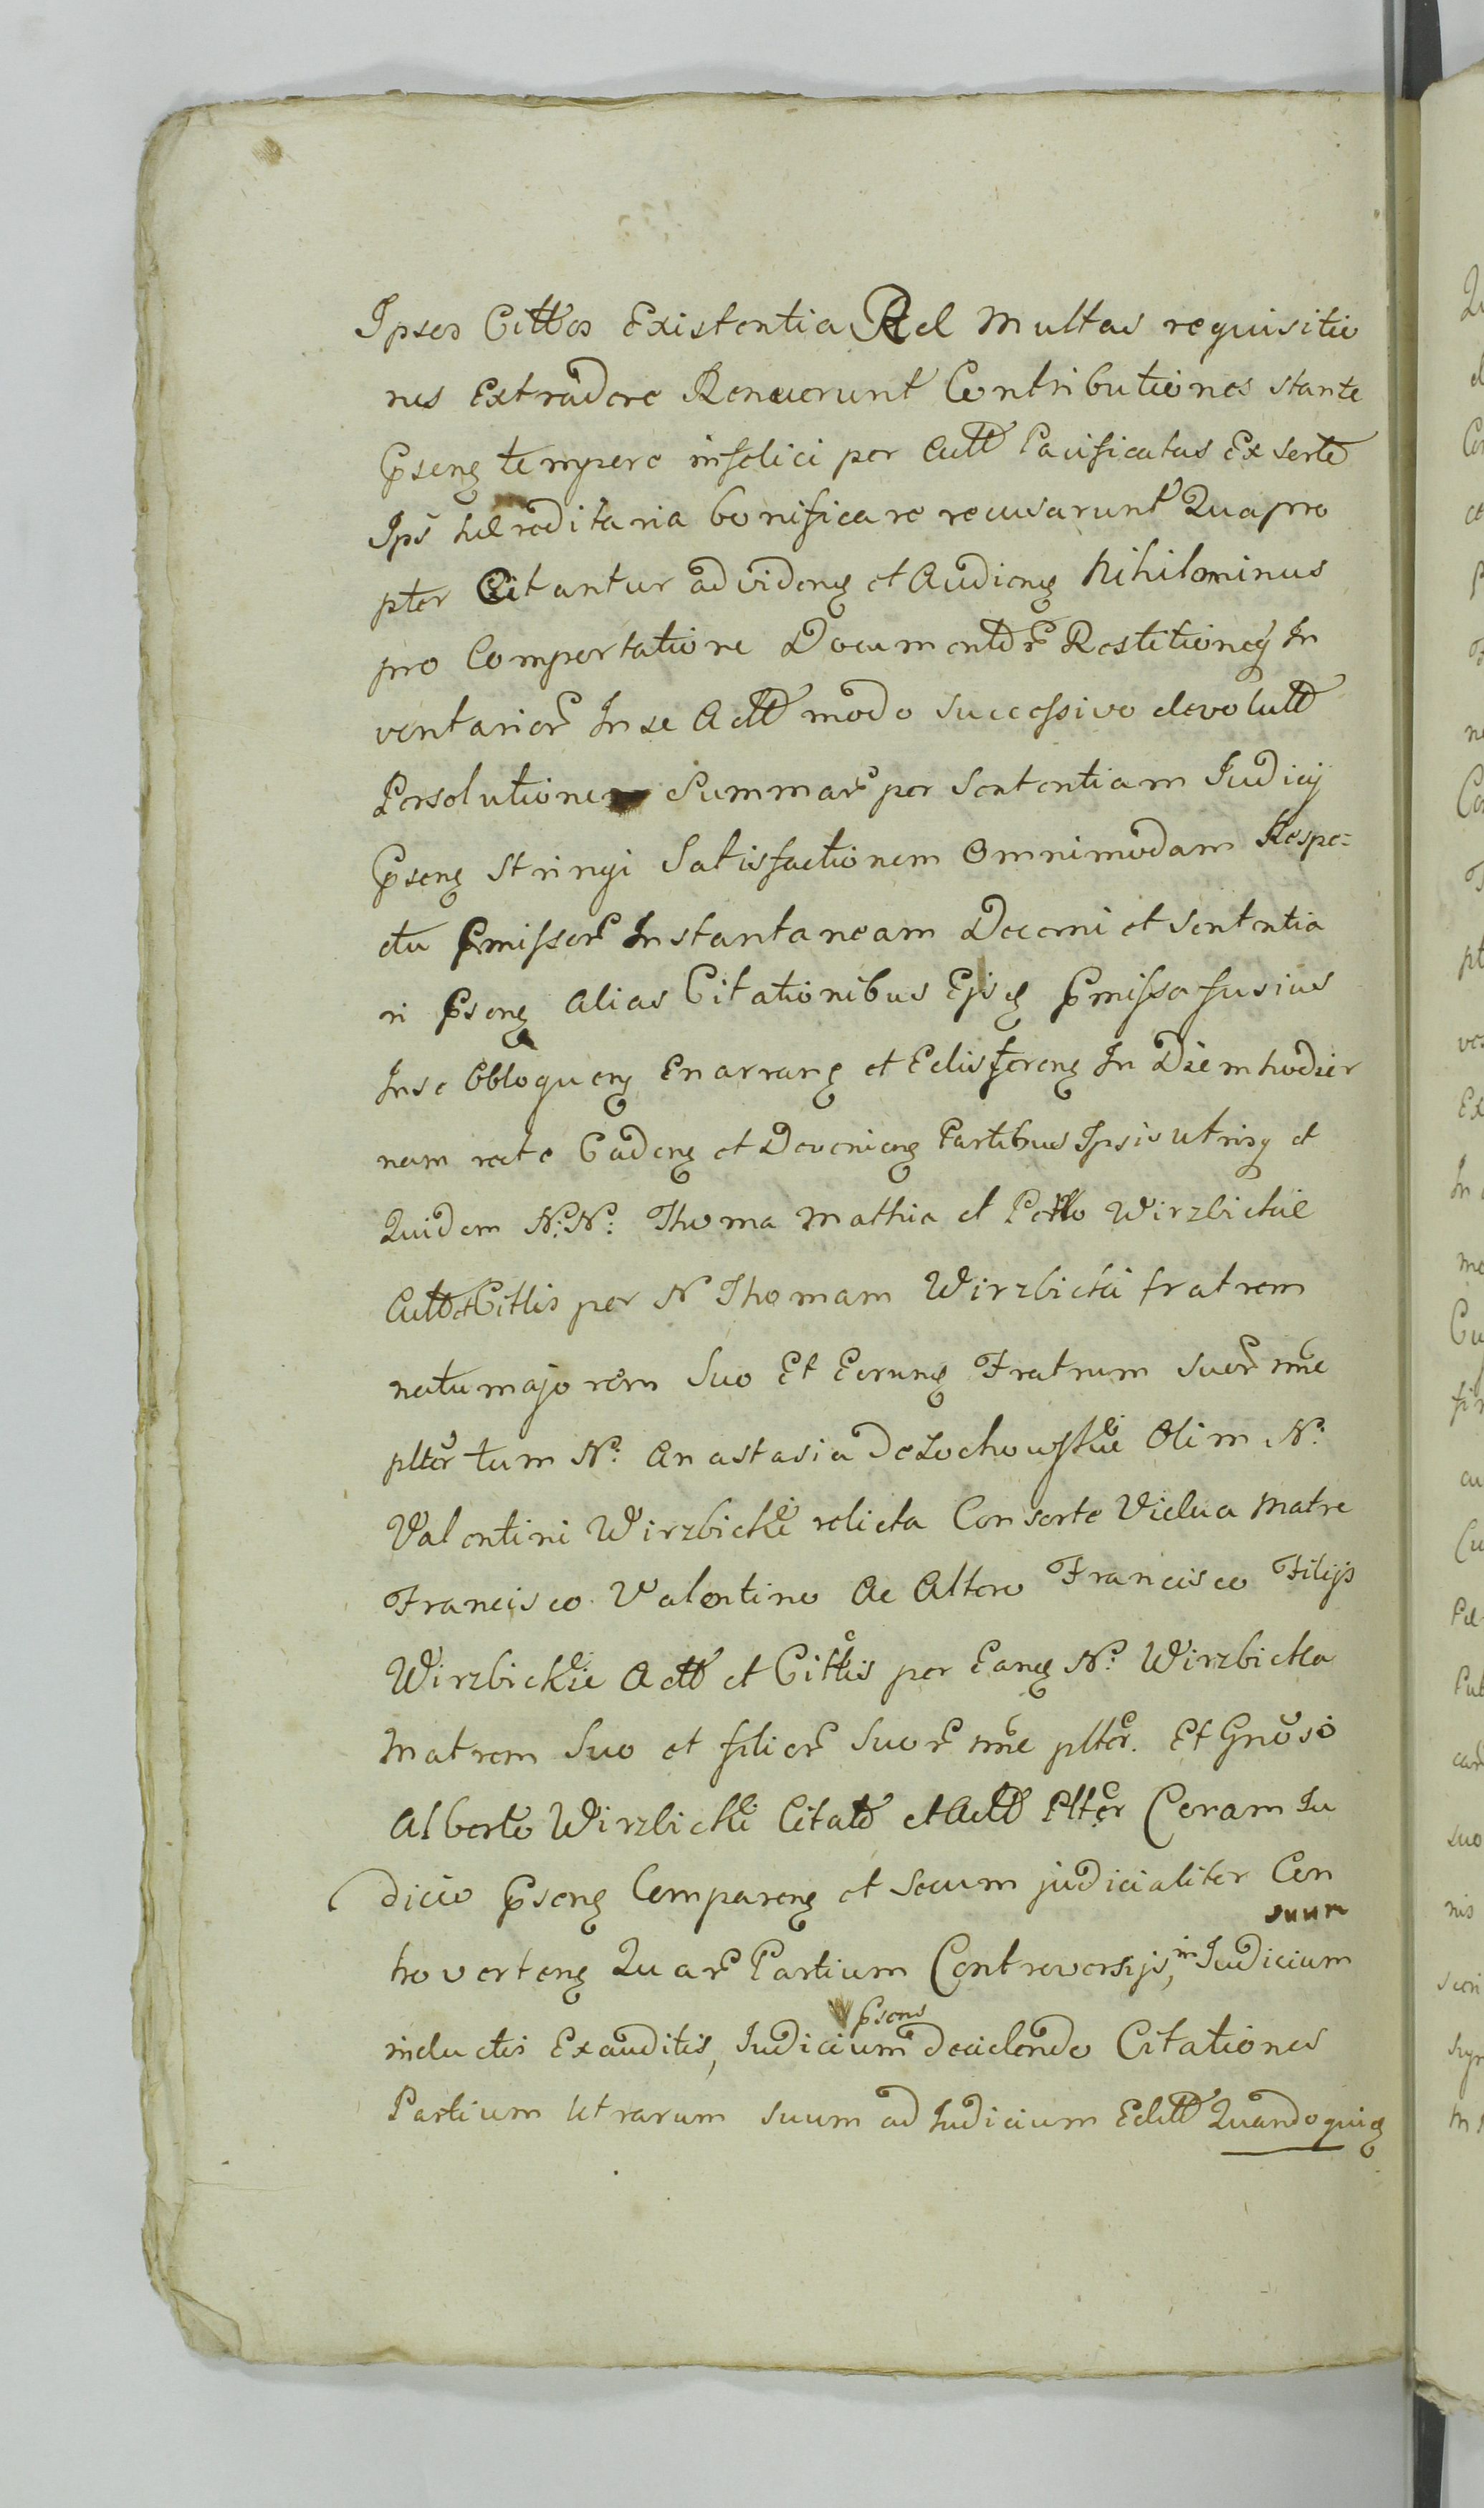 Ipsos Cittos Existentia Rel Multas requisitio
nes Extradere Renuerunt Contributiones stante
Pseng tempore infelici per Actt Pacificatas Ex serte
Ips hæreditaria bonificare recusarunt Quapro
pter Citantur ad videng et Audieng Nihilominus
pro Comportatione Documentor Restitioneq In
ventarior In se Actt modo successivo devolutt
Persolutionem Summar per Sententiam Judicij
Pseng Stringi Satisfactionem Omnimodam Respe=
ctu Pmissor Instantaneam Decerni et Sententia
ri Pseng Alias Citationibus Ejsq Pmissa fusius
In se Obloqueng Enarrang et Edisfereng In Diem hodier
nam recte Cadeng et Devenieng Partibus Ipsis utrisq et
Quidem N: N: Thoma Mathia et Petro Wirzbickie
Actt et Cittis per N Thomam Wirzbicki fratrem
natu majorem Suo Et Eorung Fratrum Suor nne
plter tum N: Anastasia de Lochowskie Olim N:
Valentini Wirzbicki relicta Consorte Vidua Matre
Francisco Valentino Ac Altero Francisco Filijs
Wirzbickie Actt et Cittis per Eang N: Wirzbicka
Matrem Suo et filior Suor nne plter. Et Gnoso
Alberto Wirzbicki Citato et Actt Plter Coram Ju
dicio Pseng Compareng et Secum judicialiter Con
suum
troverteng Quar Partium Controversijs, in Judicium
Psens
inductis Exauditis, Judicium decidendo Citationes
Partium Utrarum suum ad Judicium Editt Quandoquiq